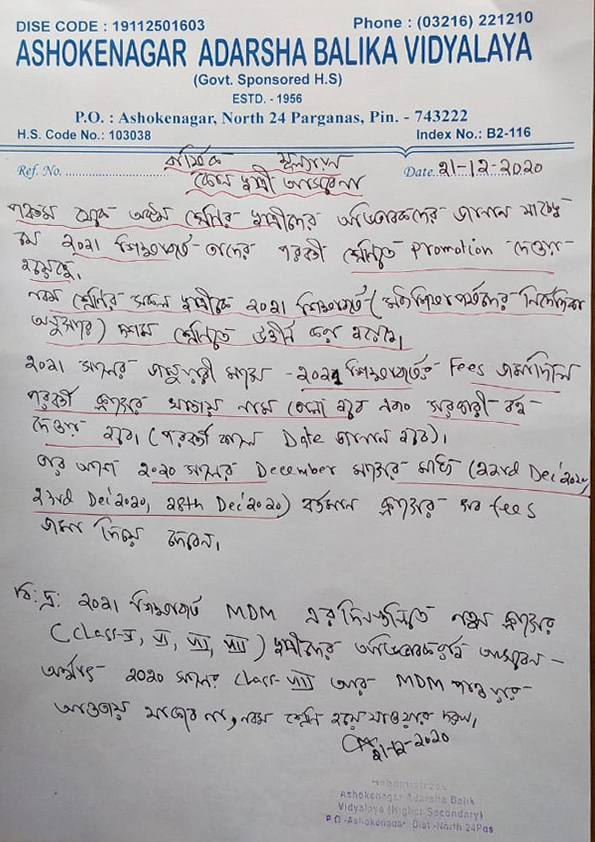 DISE CODE : 19112501603 Phone : (03216) 221210
ASHOKENAGAR ADARSHA BALIKA VIDYALAYA
(Govt. Sponsored H.S)
ESTD. - 1956
P.O. : Ashokenagar, North 24 Parganas, Pin. - 743222
H.S. Code No.: 103038 Index No.: B2-116
Ref. No. বার্ষিক মূল্যায়ন Date 21-12-2020
কোন ছাত্রী আসবে না
পঞ্চম থেকে অষ্টম শ্রেণির ছাত্রীদের অভিভাবকদের জানান যাচ্ছে
যে ২০২১ শিক্ষাবর্ষে তাদের পরবর্তী শ্রেণিতে Promotion দেওয়া
হয়েছে।
নবম শ্রেণির সকল ছাত্রীকে ২০২১ শিক্ষাবর্ষে (মধ্যশিক্ষাপর্ষদের নির্দেশিকা
অনুসারে) দশম শ্রেণিতে উত্তীর্ণ করা হয়েছে।
২০২১ সালের জানুয়ারী মাসে - ২০২১ শিক্ষাবর্ষের Fees জমা দিলে
পরবর্তী ক্লাসের খাতায় নাম তোলা হবে এবং সরকারী বই
দেওয়া হবে। (পরবর্তী কালে Date জানান হবে)।
তার আগে ২০২০ সালের December মাসের মধ্যে (22nd Dec'2020,
23rd Dec'2020, 28th Dec'2020) বর্তমান ক্লাসের সব fees
জমা দিয়ে দেবেন।
বি: দ্র: ২০২১ শিক্ষাবর্ষে MDM এর দিন নতুন ক্লাসের
(Class-V, VI, VII, VIII) ছাত্রীদের অভিভাবকরাই আসবেন -
অর্থাৎ ২০২০ সালের class-VIII আর MDM পাওয়ার
আওতায় থাকবে না, নবম শ্রেণি হয়ে যাওয়ার দরুন।
21-12-2020
Headmistress
Ashokenagar Adarsha Balik
Vidyalaya (Higher Secondary)
P.O-Ashokenagar Dist-North 24Pas